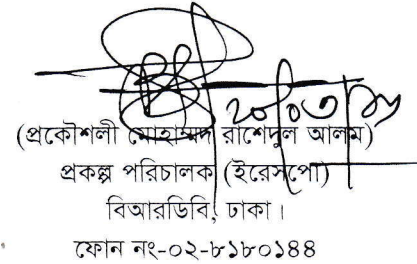 (প্রকৌশলী মোহাম্মদ রাশেদুল আলম)
প্রকল্প পরিচালক (ইরেসপো)
বিআরডিবি, ঢাকা।
ফোন নং-০২-৮১৮০১৪৪